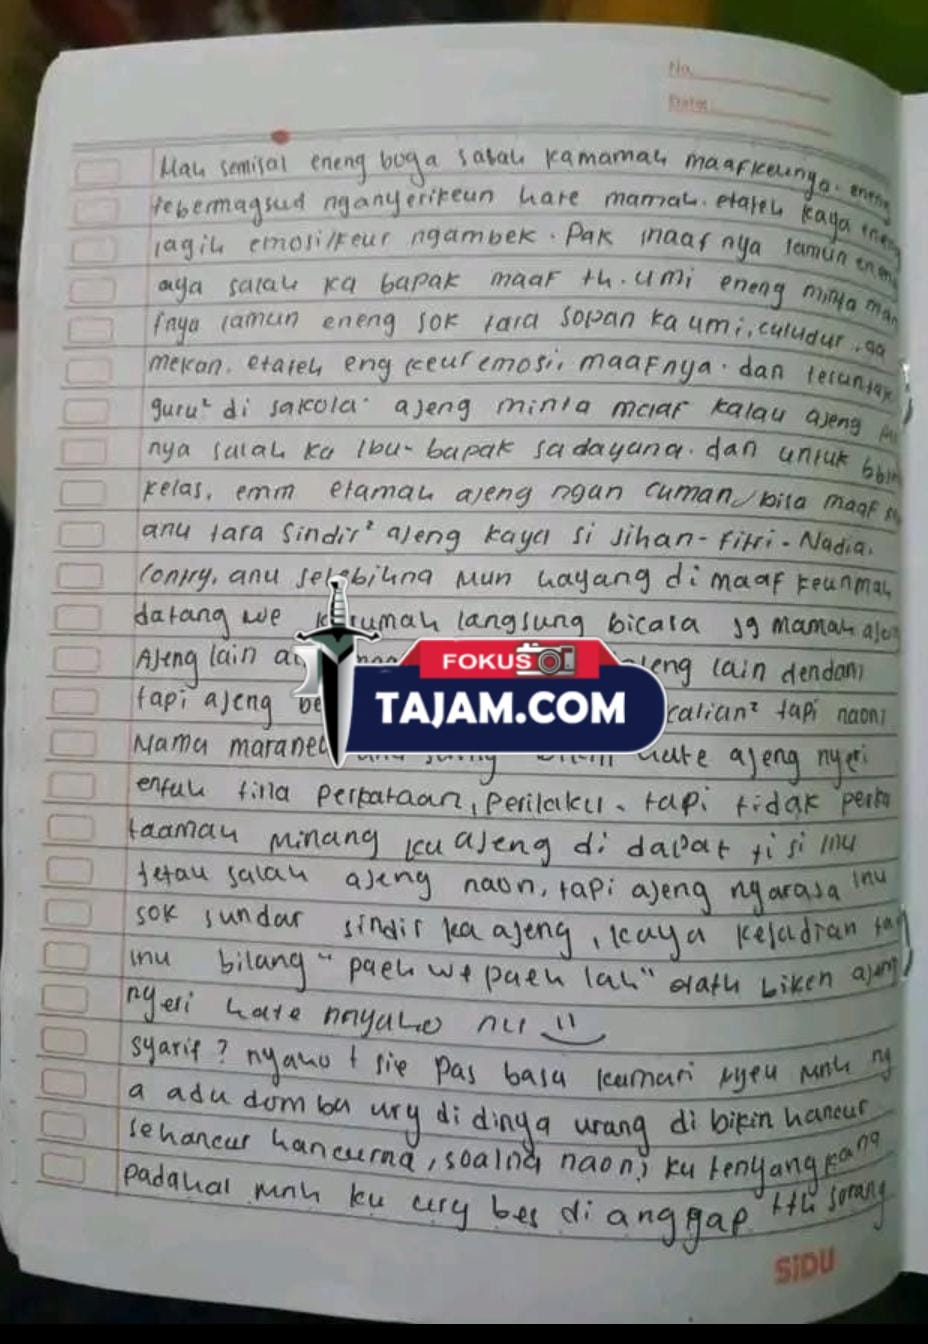 No.
Date:
Mah semisal eneng boga salah kamamah maafkeunya. eneng
tebermagsud nganyerikeun hate mamah. etateh kaya eneng
lagih emosi/keur ngambek. Pak maaf nya lamun eneng
aya salah ka bapak maaf th. umi eneng minta maa
fnya lamun eneng sok tara sopan ka umi, culudur, ga
mekon. etateh eng keur emosi, maafnya. dan teruntuk
guru² di sakola ajeng minta maaf kalau ajeng pu
nya salah ka Ibu-bapak sadayana. dan untuk
kelas, emm etamah ajeng ngan cuman bisa maaf
anu tara sindir² ajeng kaya si Jihan-Fitri-Nadia.
anu selebihna mun hayang di maaf keunmah
datang we karumah langsung bicara jg mamah ajen
Ajeng lain ajeng lain dendam
tapi ajeng be kalian² tapi naon?
Nama maraneh anu sering bikin hate ajeng nyeri
entah tina perkataan, perilaku. tapi tidak perka
taamah minang ku ajeng di dapat ti si inu
tetau salah ajeng naon, tapi ajeng ngarasa inu
sok sundar sindir ka ajeng, kaya kejadian
inu bilang "paeh we paeh lah" etath biken ajeng
nyeri hate nnyaho nu
syarif? nyaho t sie pas basa kamari nyeu mnh ng
a adu domba ury di dinya urang di bikin hancur
sehancur hancurna, soalna naon? ku tenyangkang
padahal mnh ku ury bes di anggap tth sorang
FOKUS
TAJAM.COM
SiDU